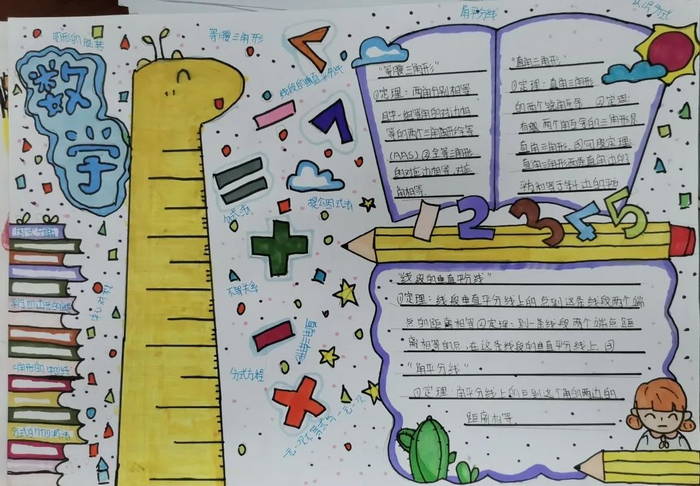 数学
等腰三角形
角平分线
"等腰三角形"
①定理:两角分别相等
且其中一组等角的对边相
等的两个三角形全等
(AAS)②全等三角形
的对应边相等、对应
角相等
"直角三角形"
①定理:直角三角形
的两个锐角互余 ②定理:
有两个角互余的三角形是
直角三角形 ③勾股定理:
直角三角形两条直角边的
平方和等于斜边的平方
提公因式法
1 2 3 4 5
"线段的垂直平分线"
①定理:线段垂直平分线上的点到这条线段两个端
点的距离相等②定理:到一条线段两个端点距
离相等的点,在这条线段的垂直平分线上
"角平分线"
①定理 角平分线上的点到这个角的两边的
距离相等
因式分解
公式法
不等关系
分式方程
三角形的中位线